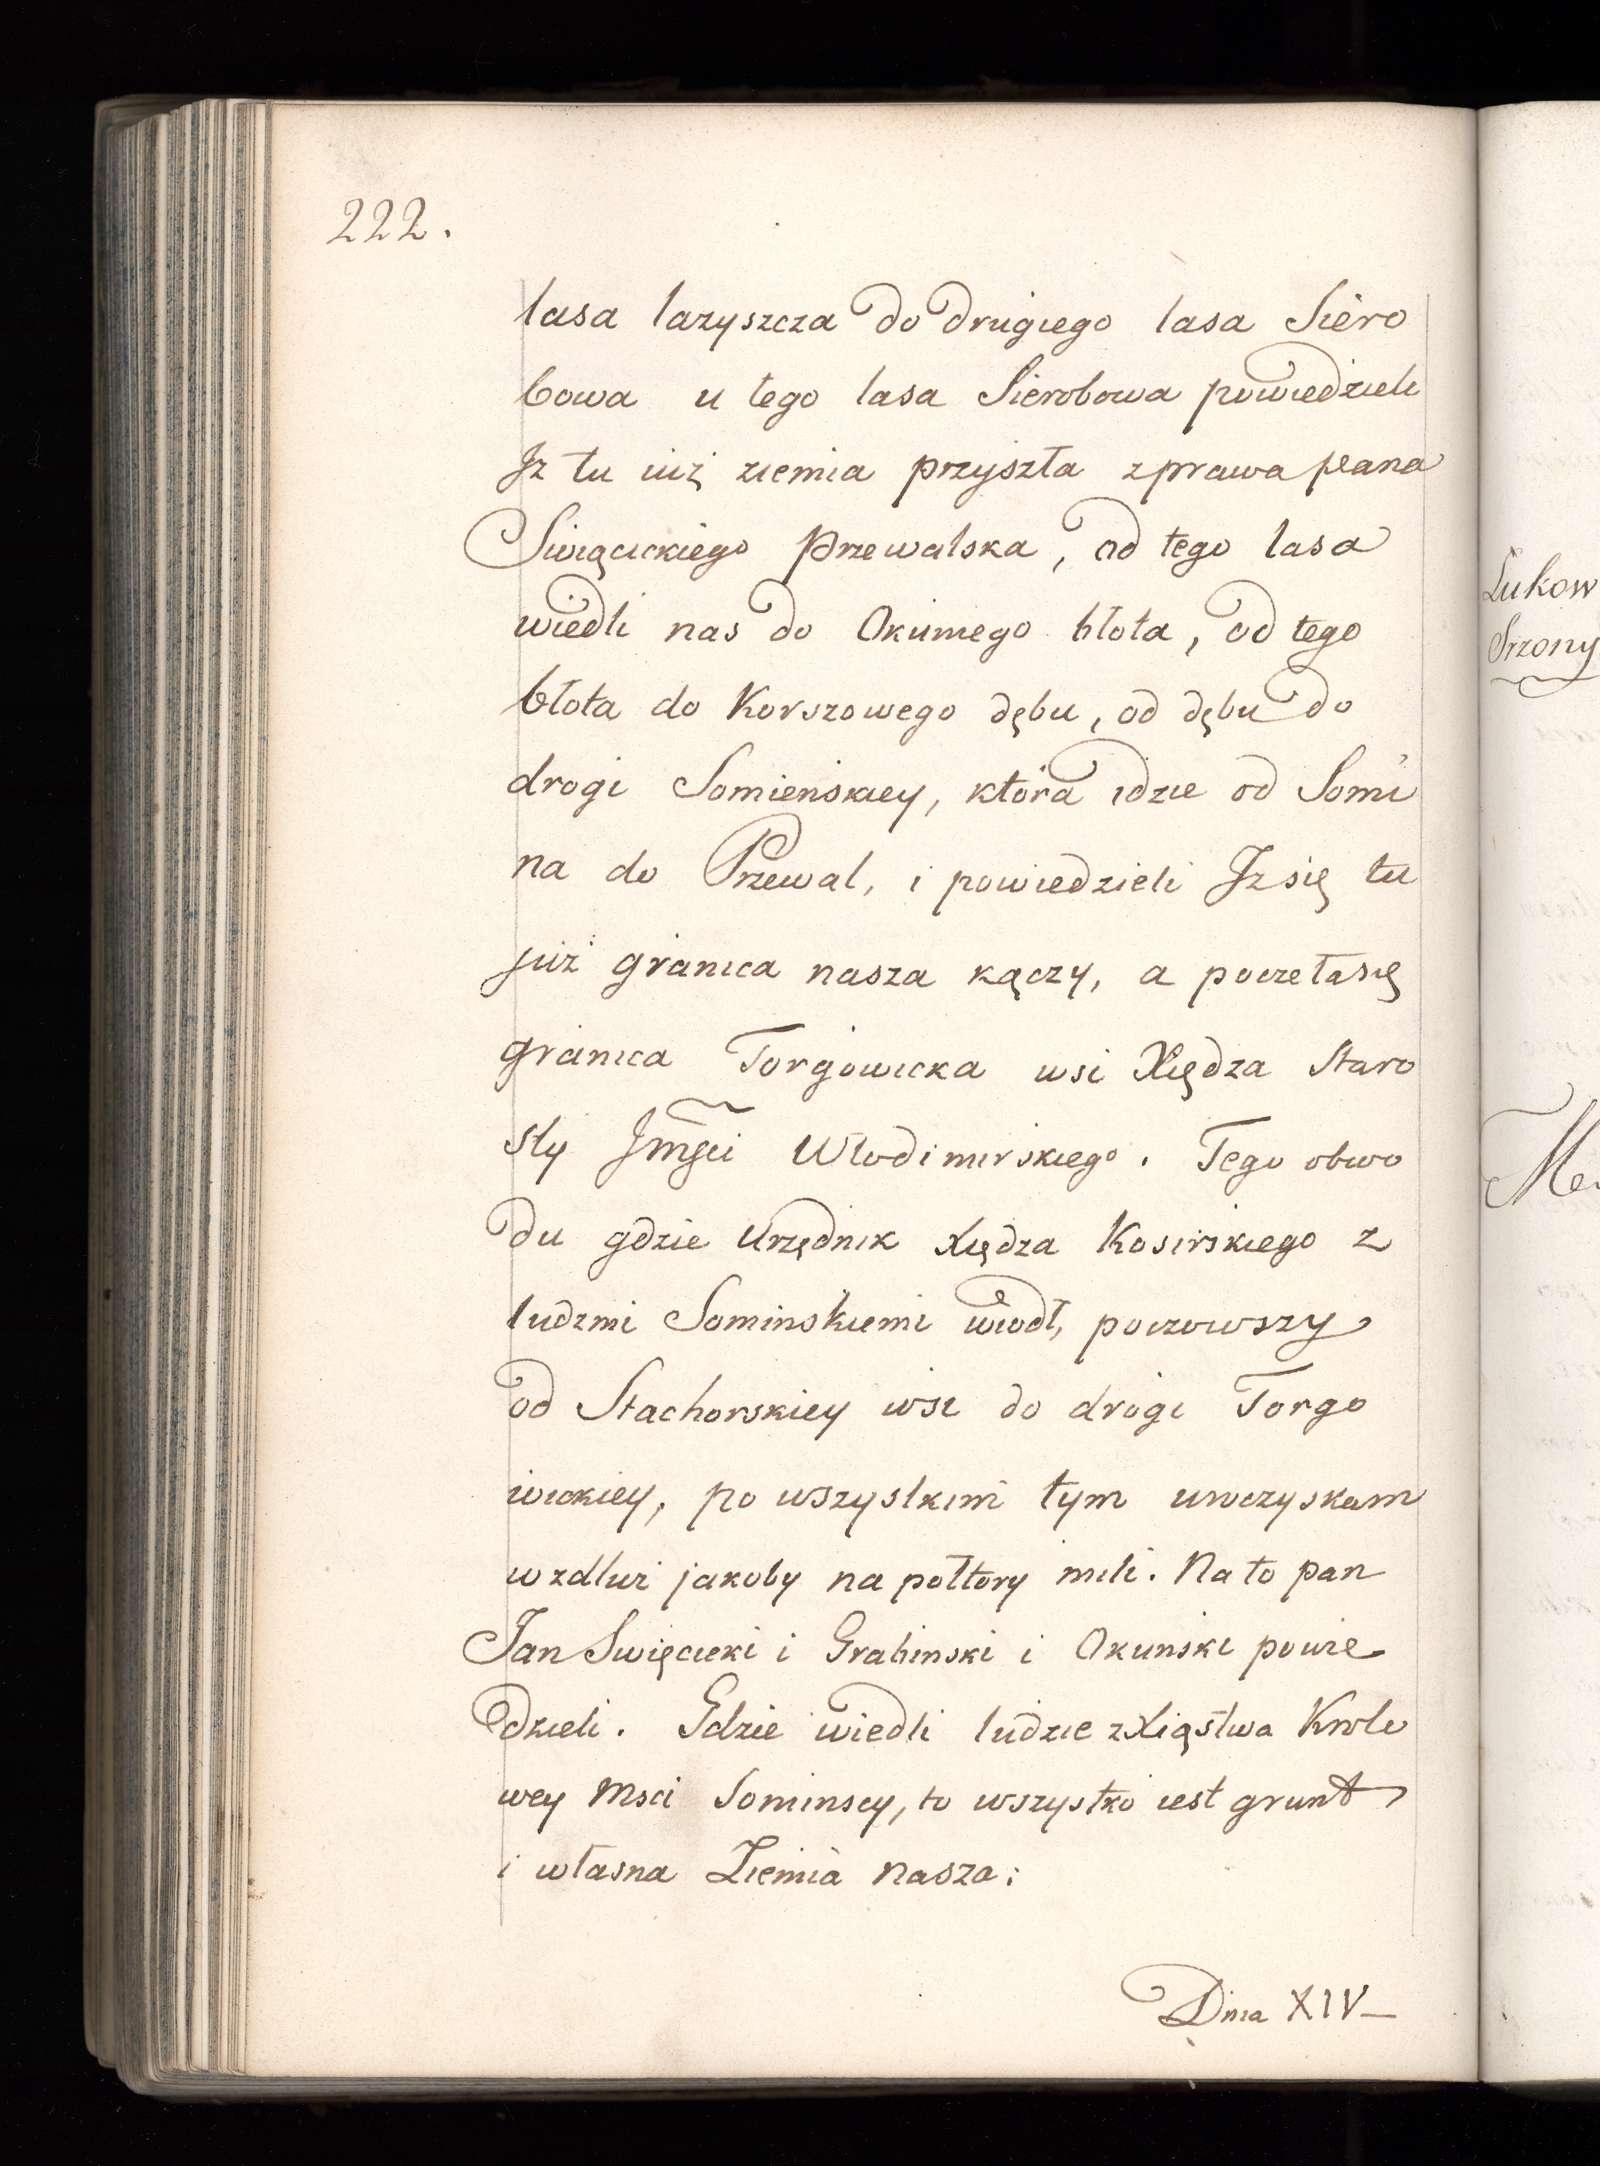 222.
lasa lazyszcza do drugiego lasa Siero
bowa u tego lasa Sierobowa powiedzieli
Jz tu iuż ziemia przyszła zprawa pana
Swięcickiego Przewalska, od tego lasa
wiedli nas do Okuniego błota, od tego
błota do Korszowego dębu, od dębu do
drogi Somieńskiey, która idzie od Somi
na do Przewal, i powiedzieli Jz się tu
już granica nasza kączy, a poczeła się
granica Torgowicka wsi Xiędza Staro
sty Jmści Włodimirskiego. Tego obwo
du gdzie Urzędnik Xiędza Kosirskiego z
ludzmi Sominskiemi wiodł, poczowszy
od Stachorskiey wsi do drogi Torgo
wickiey, po wszystkim tym uroczyskam
wzdluż jakoby na połtory mili. Na to pan
Jan Swięcicki i Grabinski i Okunski powie
dzieli. Gdzie wiedli ludzie z Xięstwa Krole
wey Msci Sominscy, to wszystko iest grunt
i własna Ziemia nasza:
Dnia XIV
Łukow